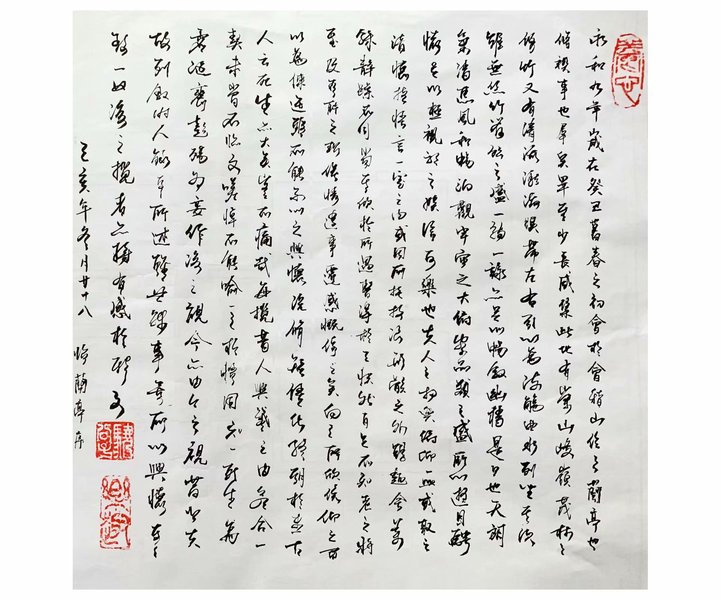 永和九年歲在癸丑暮春之初會於會稽山陰之蘭亭
修禊事也群賢畢至少長咸集此地有崇山峻嶺茂林
修竹又有清流激湍映帶左右引以為流觴曲水列坐其次
雖無絲竹管絃之盛一觴一詠亦足以暢敘幽情是日也天朗
氣清惠風和暢仰觀宇宙之大俯察品類之盛所以遊目騁
懷足以極視聽之娛信可樂也夫人之相與俯仰一世或取
諸懷抱悟言一室之內或因所托放浪形骸之外雖趣舍萬
殊靜躁不同當其欣於所遇暫得於己快然自足不知老之將
至及其所之既倦情隨事遷感慨係之矣向之所欣俛仰之間
以為陳迹猶不能不以之興懷況修短隨化終期於盡古
人云死生亦大矣豈不痛哉每攬昔人興感之由若合一
契未嘗不臨文嗟悼不能喻之於懷固知一死生為
虛誕齊彭殤為妄作後之視今亦由今之視昔悲夫
故列敘時人錄其所述雖世殊事異所以興懷其
致一也後之攬者亦將有感於斯文
己亥年冬月廿十八 臨蘭亭序